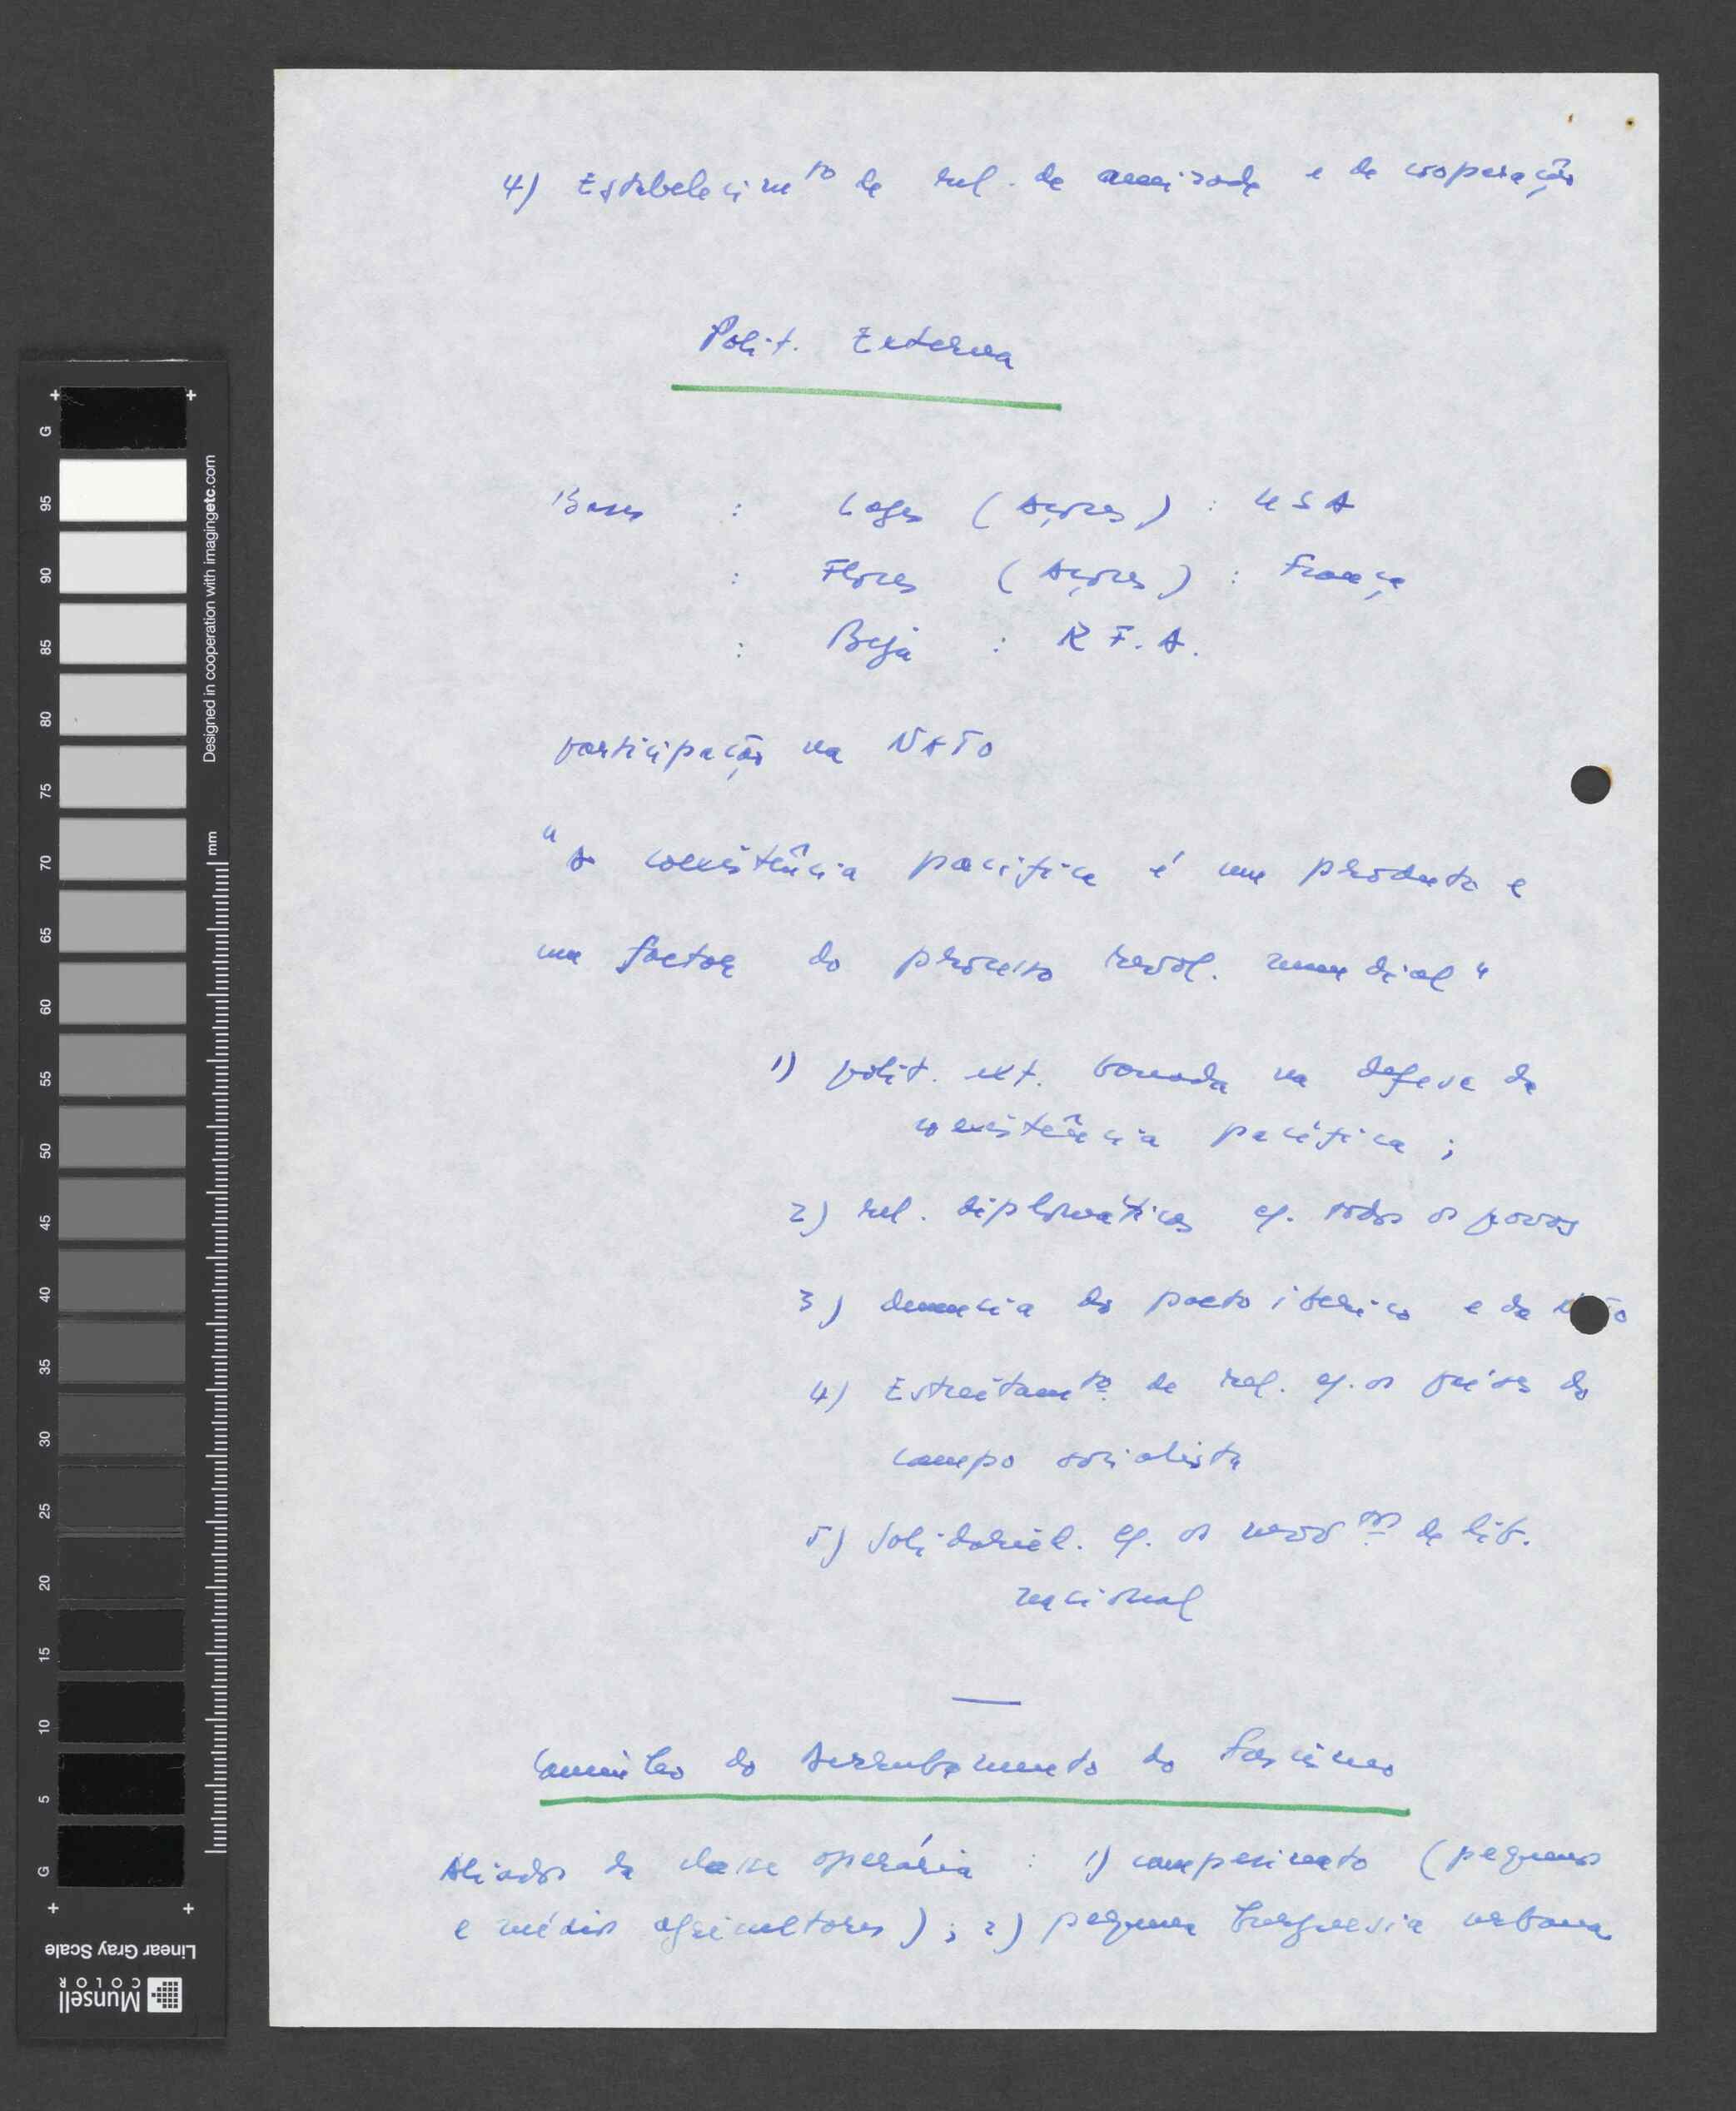 4) Estabelecim^to de rel. de amizade e de cooperação
Polit. Externa
Bases : Lages (Açores) : USA
: Flores (Açores) : França
: Beja : R F. A.
participação na NATO
"A coexistência pacifica é um produto e
um factor do processo revol. mundial"
1) polit. ext. baseada na defesa da
coexistência pacífica ;
2) rel. diplomáticas c/. todos os povos
3) denuncia do pacto iberico e da
4) Estreitam^to de rel. c/. os países do
campo socialista
5) Solidaried. c/. os mov^tos de lib.
nacional
Caminho do Derrubamento do Fascismo
Aliados da classe operária : 1) campesinato (pequenos
e médios agricultores) ; 2) pequena burguesia urbana
Designed in cooperation with imagingetc.com
mm
G
95
90
85
80
75
70
65
60
55
50
45
40
35
30
25
20
15
10
5
G
Linear Gray Scale
Munsell
COLOR